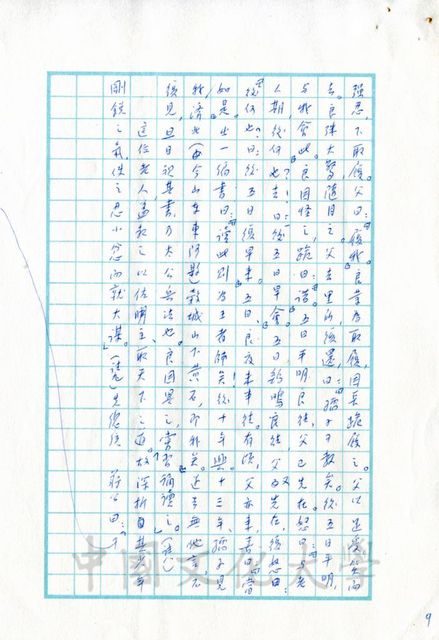 強忍，下取履。父曰：「履我。」良業為取履，因長跪履之。父以足受笑而
去，良殊大驚，隨目之。父去里所，復還，曰：「孺子可教矣。後五日平明，
與我會此。」良因怪之，跪曰：「諾。」五日平明，良往，父已先在，怒曰：「與老
人期，後何也？去！曰：後五日早會。」五日鷄鳴，良往，父又先在，復怒曰：
「後何也？曰：後五日復早來。」五日，良夜未半往。有頃，父亦來，喜曰：「當
如是。」出一編書，曰：「讀此則為王者師矣！後十年興。十三年，孺子見
我，濟北(山東東阿縣)穀城山下黃石，即我矣。」遂去，無他言，不
復見。旦日視其書，乃太公兵法也。良因異之，常習誦讀之。
這位老人，
剛銳之氣，使之忍小忿而就大謀。
9
中國文化大學